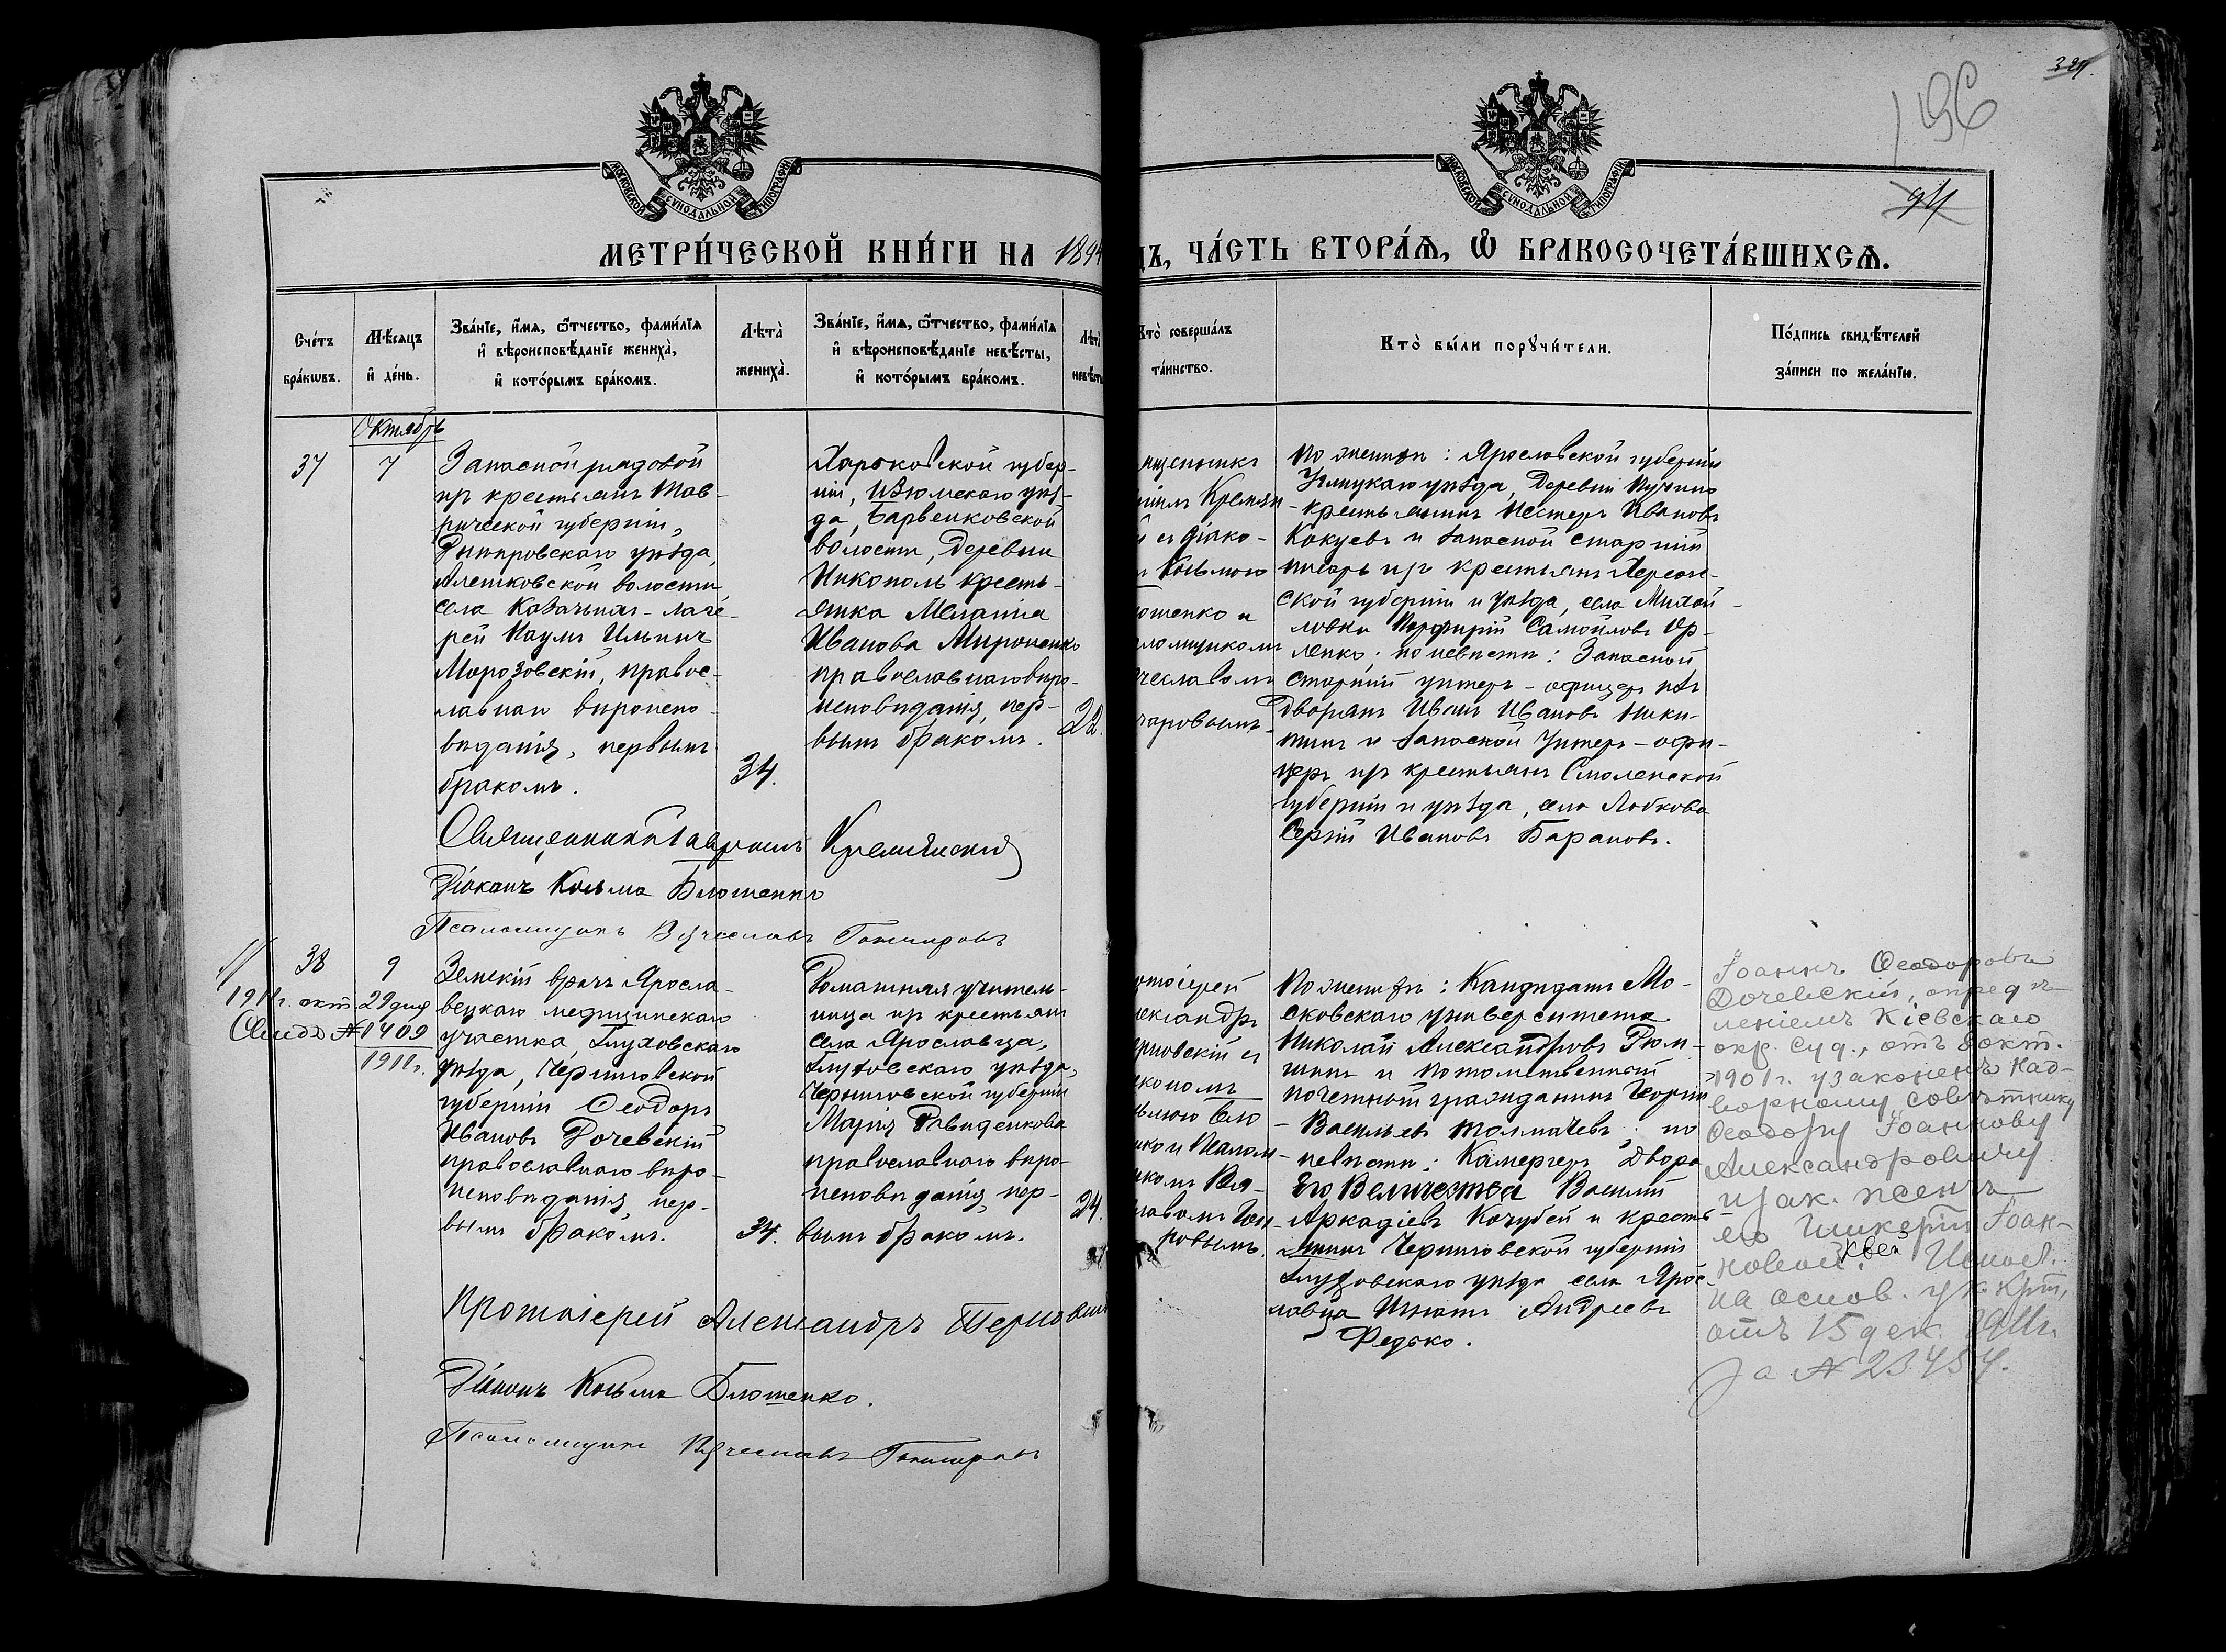 324.
196
94
МОСКОВСКОЙ СѴНОДАЛЬНОЙ ТИПОГРАФІИ
МОСКОВСКОЙ СѴНОДАЛЬНОЙ ТИПОГРАФІИ
МЕТРИ́ЧЕСКОЙ КНИ́ГИ НА 1894
ДЪ, ЧА́СТЬ ВТОРА́Ѧ, Ѡ҆ БРАКОСОЧЕТА́ВШИХСѦ.
Сче́тъ
бра́кѡвъ.
Мѣ́сѧцъ
и҆ де́нь.
Зва́нїе, и҆́мѧ, ѻ҆́тчество, фами́лїѧ
и҆ вѣроисповѣ́данїе жениха̀,
и҆ кото́рымъ бра́комъ.
Лѣта̀
жениха̀.
Зва́нїе, и҆́мѧ, ѻ҆́тчество, фами́лїѧ
и҆ вѣроисповѣ́данїе невѣ́сты,
и҆ кото́рымъ бра́комъ.
Лѣта̀
невѣ́ст
Кто̀ соверша́лъ
та́инство.
Кто̀ бы́ли порꙋчи́тели.
По́дпись свидѣ́телей
за́писи по жела́нїю.
Октябрь
37
7
Запасной рядовой
изъ крестьянъ Тав-
рической губерніи,
Днѣпровскаго уѣзда,
Алешковской волости,
села Казачьихъ-лаге-
рей Наумъ Ильинъ
Морозовскій, правос-
лавнаго вѣроиспо-
вѣданія, первымъ
бракомъ.
34.
Харьковской губер-
ніи, Изюмскаго уѣз-
да, Барвенковской
волости, деревни
Никополь кресть-
янка Меланія
Иванова Мироненко
православнаго вѣро-
исповѣданія, пер-
вымъ бракомъ.
22.
ященникъ
іилъ Кремян
й съ діако-
ъ Козьмою
юшенко и
аломщикомъ
чеславомъ
чаровымъ.
По женихѣ: Ярославской губерніи
Углицкаго уѣзда, деревни Пучино
крестьянинъ Нестеръ Ивановъ
Кокуевъ и запасной старшій
писарь изъ крестьянъ Херсон-
ской губерніи и уѣзда, села Михай-
ловки Порфирій Самойловъ Ор-
ленко; по невѣстѣ: Запасной
старшій унтеръ-офицеръ изъ
дворянъ Иванъ Ивановъ Ники-
тинъ и запасной унтеръ-офи-
церъ изъ крестьянъ Смоленской
губерніи и уѣзда, села Лобкова
Сергій Ивановъ Барановъ.
Священникъ Гавріилъ Кремянскій
Діаконъ Козьма Блюшенко
Псаломщикъ Вячеславъ
38
9
1911г. окт 29 дня
№1409
1911г.
Земскій врачъ Яросла-
вецкаго медицинскаго
участка, Глуховскаго
уѣзда, Черниговской
губерніи Ѳеодоръ
Ивановъ Дочевскій
православнаго вѣро-
исповѣданія, пер-
вымъ бракомъ.
34.
Домашняя учитель-
ница изъ крестьянъ
села Ярославца,
Глуховскаго уѣзда,
Черниговской губерніи
Марія Давиденкова
православнаго вѣро-
исповѣданія, пер-
вымъ бракомъ.
24.
отоіерей
лександръ
рновскій съ
акономъ
зьмою Блю
нко и Псалом-
комъ Вя-
славомъ
ровымъ.
По женихѣ: Кандидатъ Мо-
сковскаго университета
Николай Александровъ Рюм-
шинъ и потомственный
почетный гражданинъ Георгій
Васильевъ Толмачевъ; по
невѣстѣ: Камергеръ Двора
Его Величества Василій
Аркадіевъ Кочубей и кресть
янинъ Черниговской губерніи
Глуховскаго уѣзда села Ярос-
лавца Игнатъ Андреевъ
Федько.
Іоаннъ Ѳеодоровъ
Дочевскій, опредѣ-
леніемъ Кіевскаго
окр. суд., отъ 8 окт.
1901г. узаконенъ Над-
ворному Совѣтнику
Ѳеодору Іоаннову
Александровичу
и зак. женѣ
его Гликеріи Іоан-
новой.
на основ. ук.
отъ 15 дек. 1911г.
за № 23454.
Протоіерей Александръ Терновскій
Діаконъ Козьма Блюшенко.
Псаломщикъ Вячеславъ